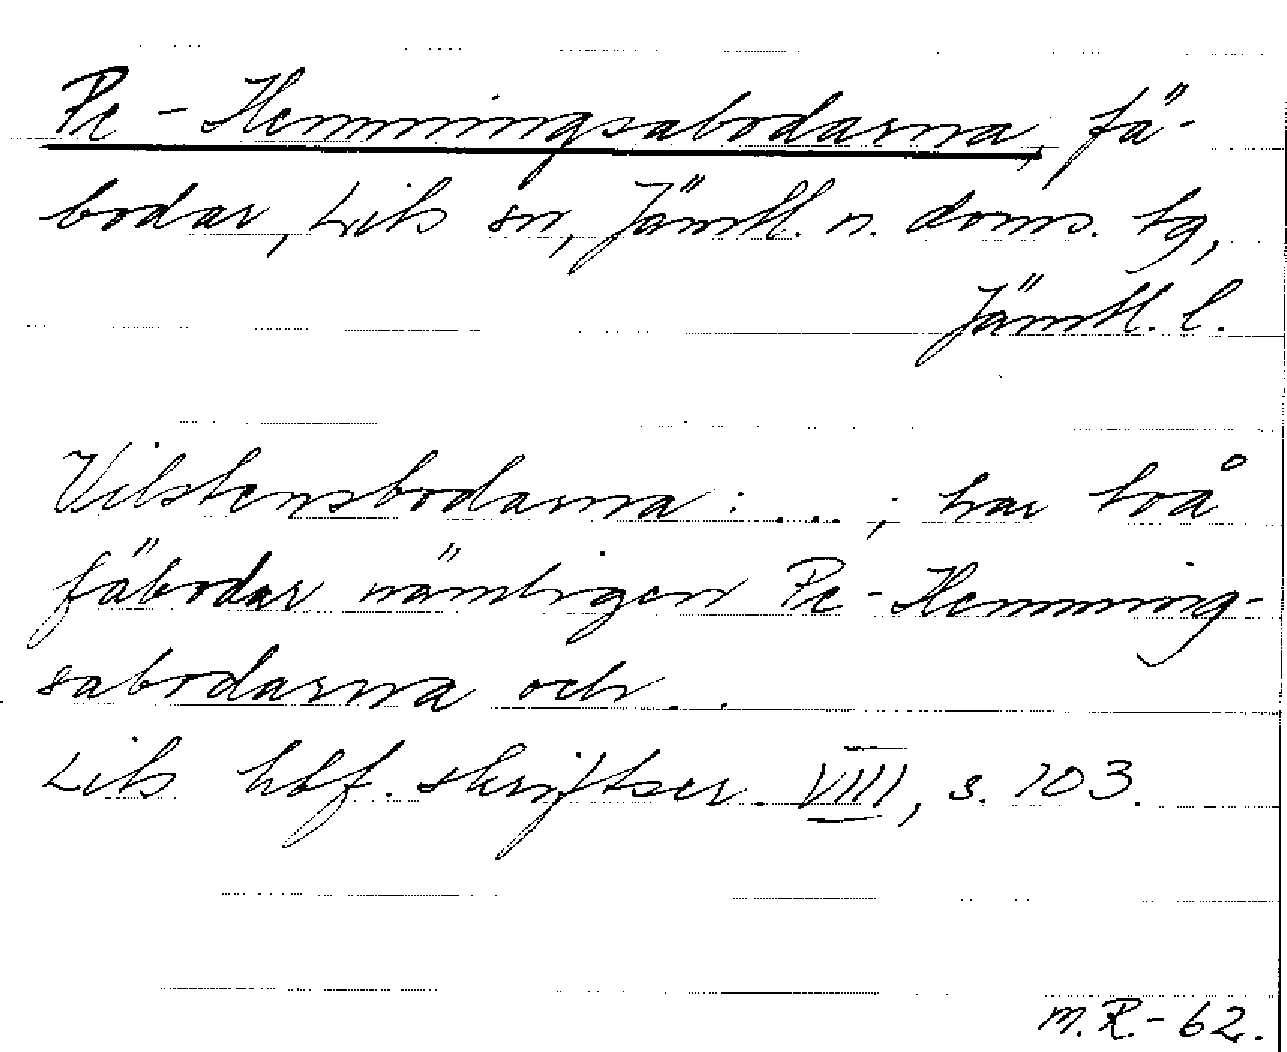 Pe-Hemmingsabodarna, fä-
bodar, Lits sn, Jämtl. n. doms. tg,
Jämtl. l.
Vilstensbodarna: ...; har två
fäbodar nämligen Pe-Hemming-
sabodarna och..
Lits hbf. skriftser. VIII, s. 103.
M.R.-62.